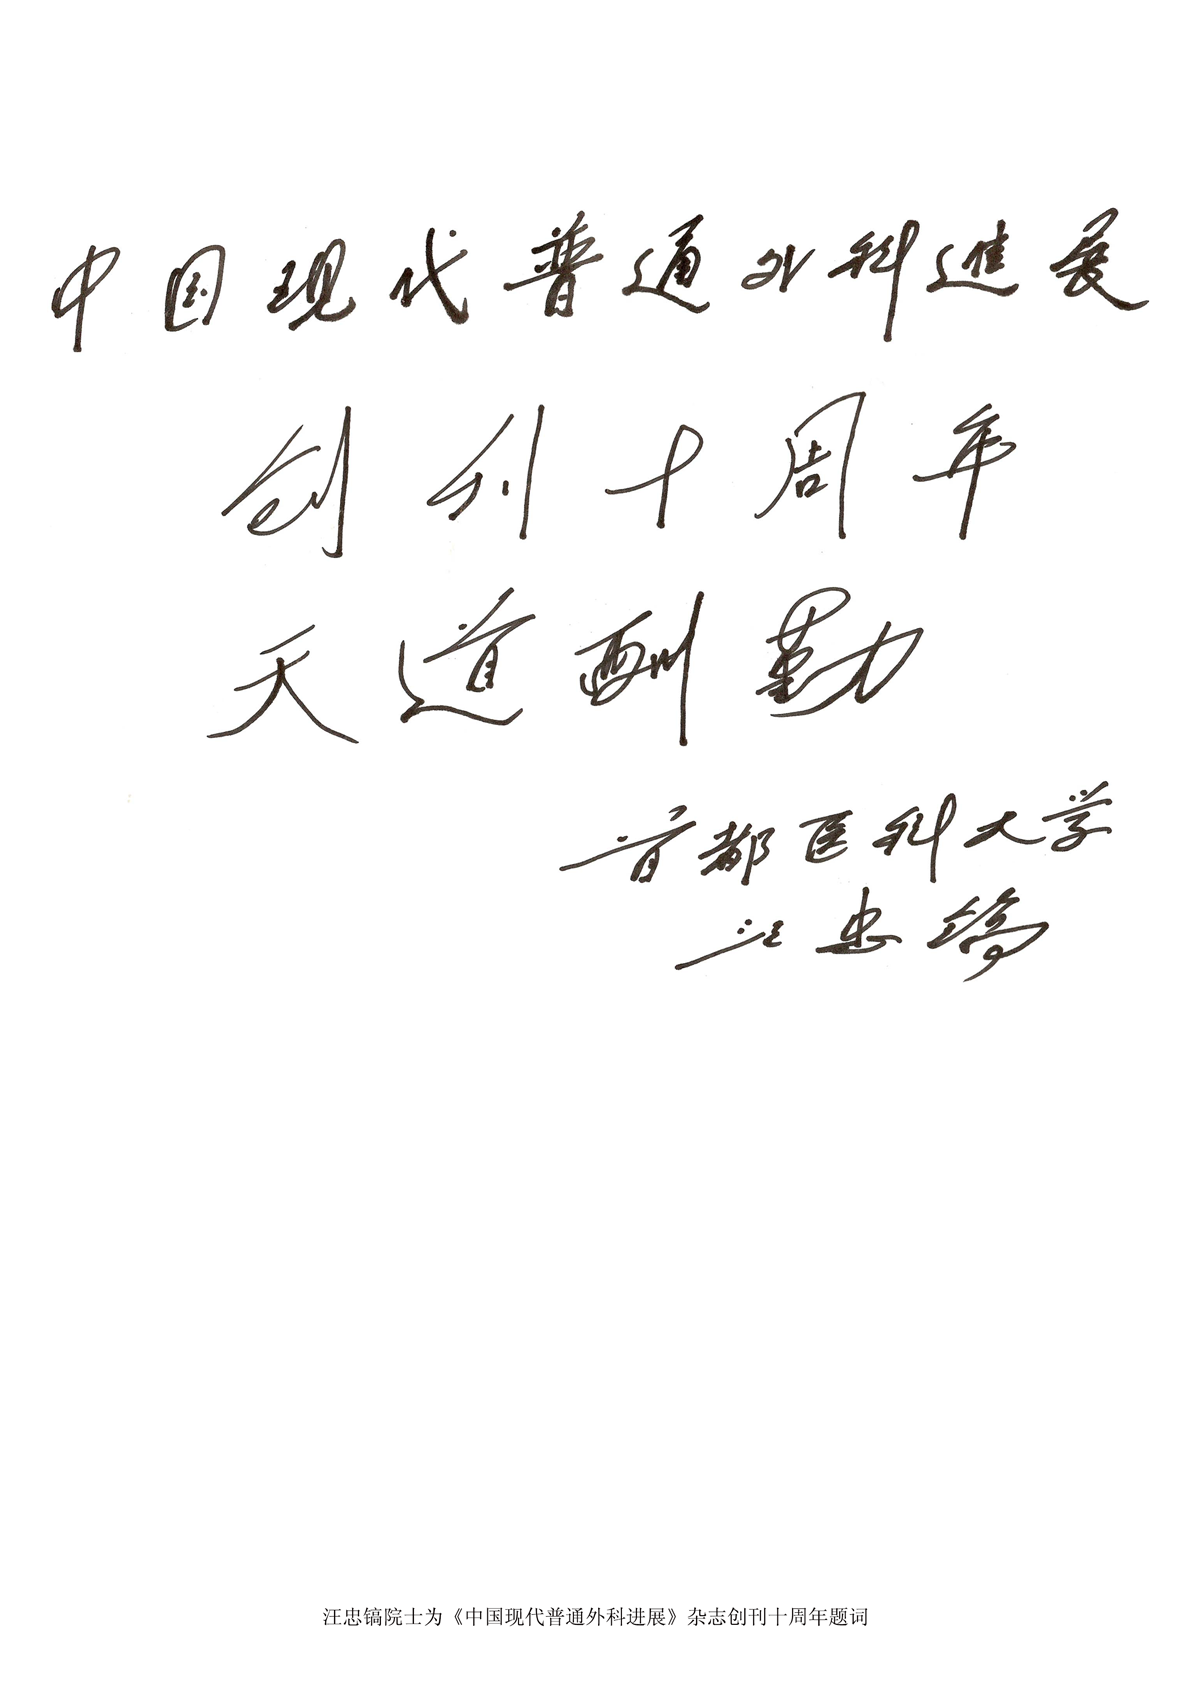 中国现代普通外科進展
创刊十周年
天道酬勤
首都医科大学
汪忠镐
汪忠镐院士为《中国现代普通外科进展》杂志创刊十周年题词